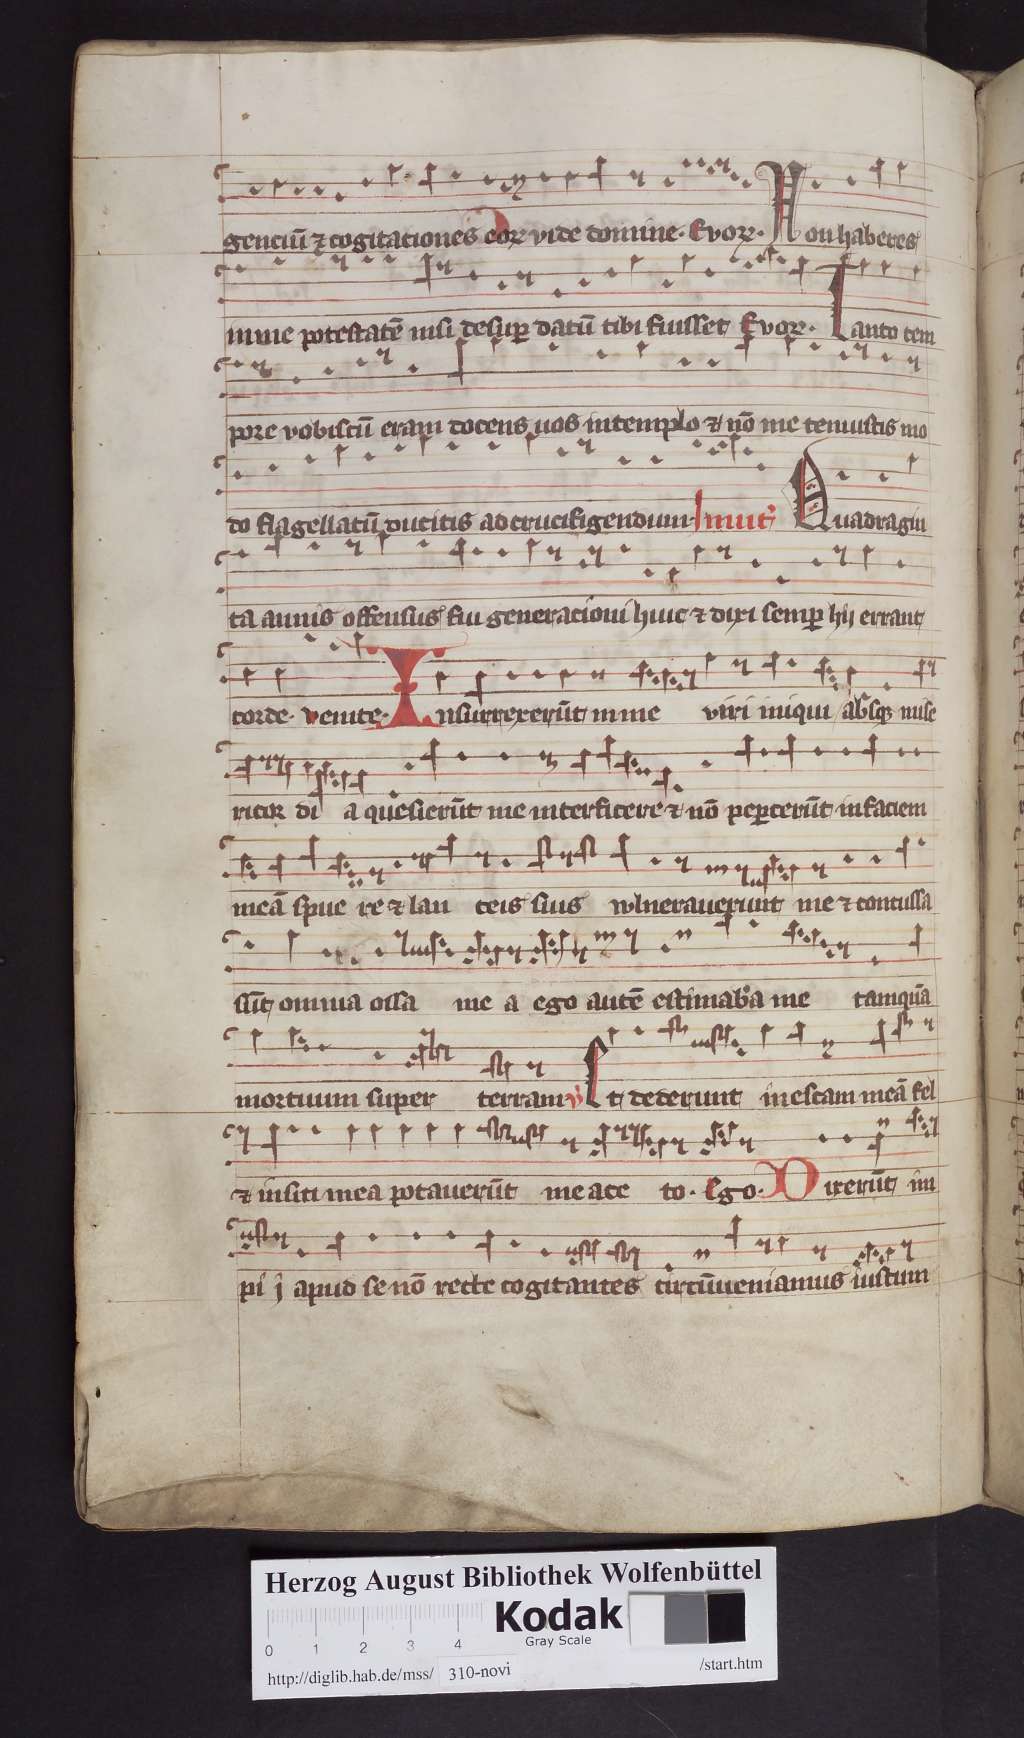 genciū ⁊ cogitaciones eoꝝ vide domine· Evoꝝ· Non haberes
in me potestatē nisi desuꝑ datū tibi fuisset Evoꝝ· Tanto tem
pore vobiscū eram docens uos in templo ⁊ nō me tenuistis mo
do flagellatū ducitis ad crucifigendum Inuit̄ Quadragin
ta annis offensus fui generacioni huic ⁊ dixi semꝑ hij errant
corde· venite· Insurrexerūt in me viri iniqui absqꝫ mise
ricor di a quesierūt me interficere ⁊ nō peꝑcerūt in faciem
meā spue re ⁊ lan ceis suis wlnerauerunt me ⁊ concussa
sūt omnia ossa me a ego autē estimaba me tamquā
mortuum super terram v̓ Et dederunt in escam meā fel
⁊ in siti mea potauerūt me ace to· Ego· Dixerūt im
pi j apud se nō recte cogitantes circūueniamus iustum
Herzog August Bibliothek Wolfenbüttel
Kodak
Gray Scale
0 1 2 3 4
http://diglib.hab.de/mss/ 310-novi /start.htm